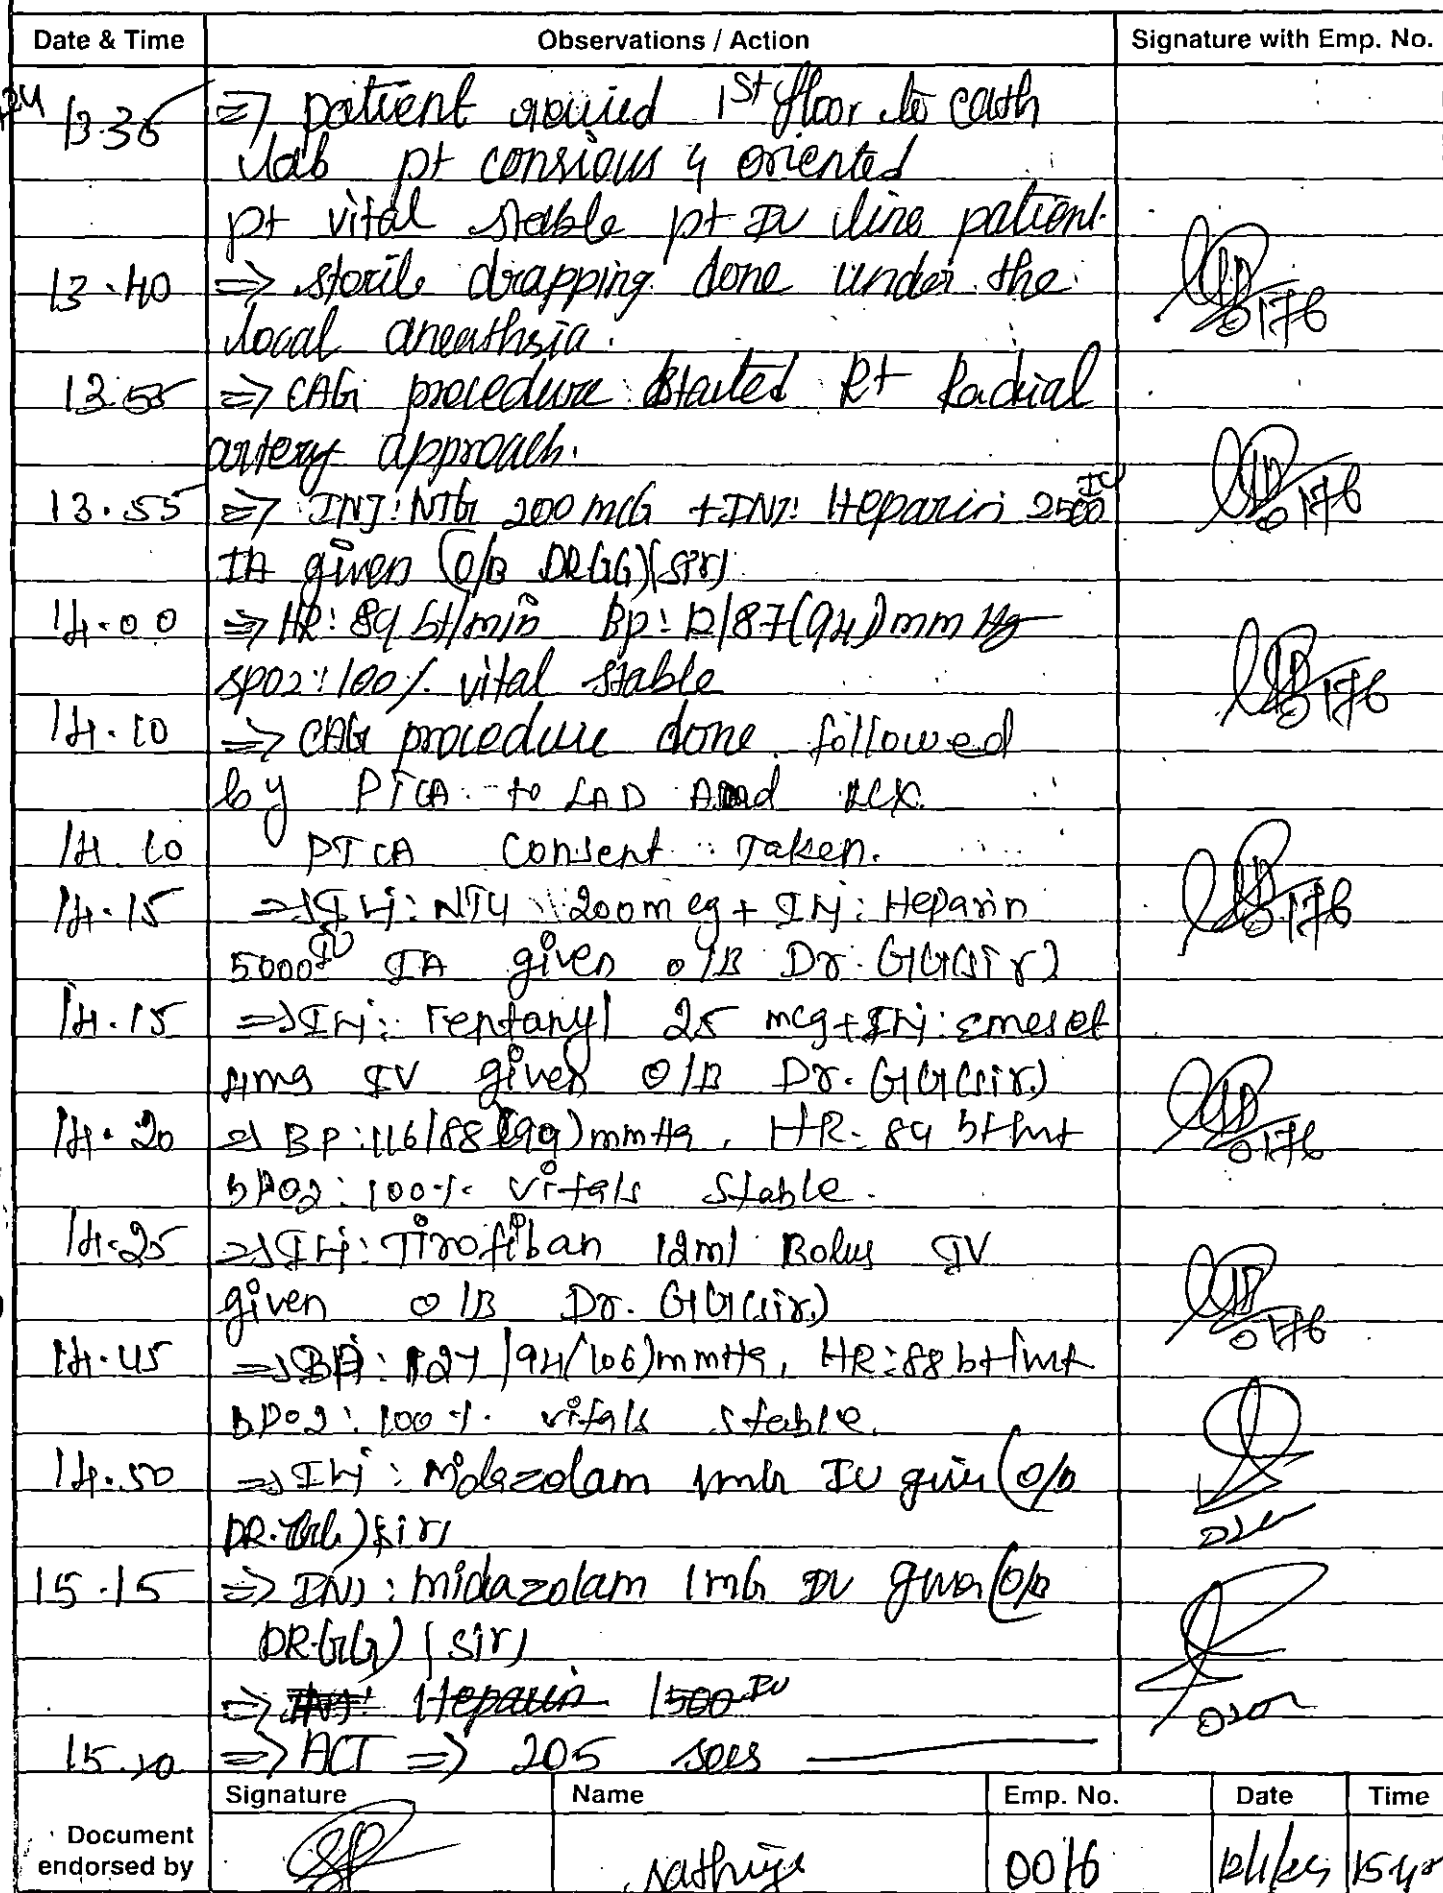 Date & Time Observations / Action Signature with Emp. No.
13.35 => patient 1st floor to cath
lab pt consious & oriented
pt vital stable pt IV line patient.
13.40 => sterile drapping done under the 0176
local aneathsia.
13.55 => CAG procedure started Rt Radial
artery approach. 0176
13.55 => INJ: NTG 200 mcG + INJ: Heparin 2500 IU
IA given (O/B DR GG)(sir)
14.00 => HR: 89 bt/min BP: 12/87(94) mmHg 0176
SPO2: 100% vital stable
14.10 => CAG procedure done followed
by PTCA to LAD And LCX.
14.10 PTCA Consent Taken. 0176
14.15 => Inj: NTG 200mcg + Inj: Heparin
5000 IU IA given O/B Dr. GG(sir)
14.15 => Inj: Fentanyl 25 mcg + Inj: Emeset
4mg IV given O/B Dr. GG(sir) 0176
14.20 => BP: 116/88(99)mmHg, HR: 89 bt/mt
SPO2: 100% vitals stable.
14.25 => Inj: Tirofiban 12ml Bolus IV 0176
given O/B Dr. GG(sir)
14.45 => BP: 127/94(106)mmHg, HR: 88 bt/mt
SPO2: 100% vitals stable.
14.50 => Inj: Midazolam 1mG IV given (O/B
DR. GG) sir)
15.15 => INJ: midazolam 1mG IV given (O/B
DR. GG) (sir)
=> INJ: Heparin 1500 IU
15.20 => ACT => 205 secs
Signature Name Emp. No. Date Time
Document
endorsed by 0016